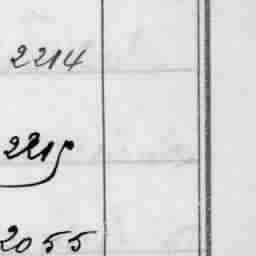 2214
2215
2055